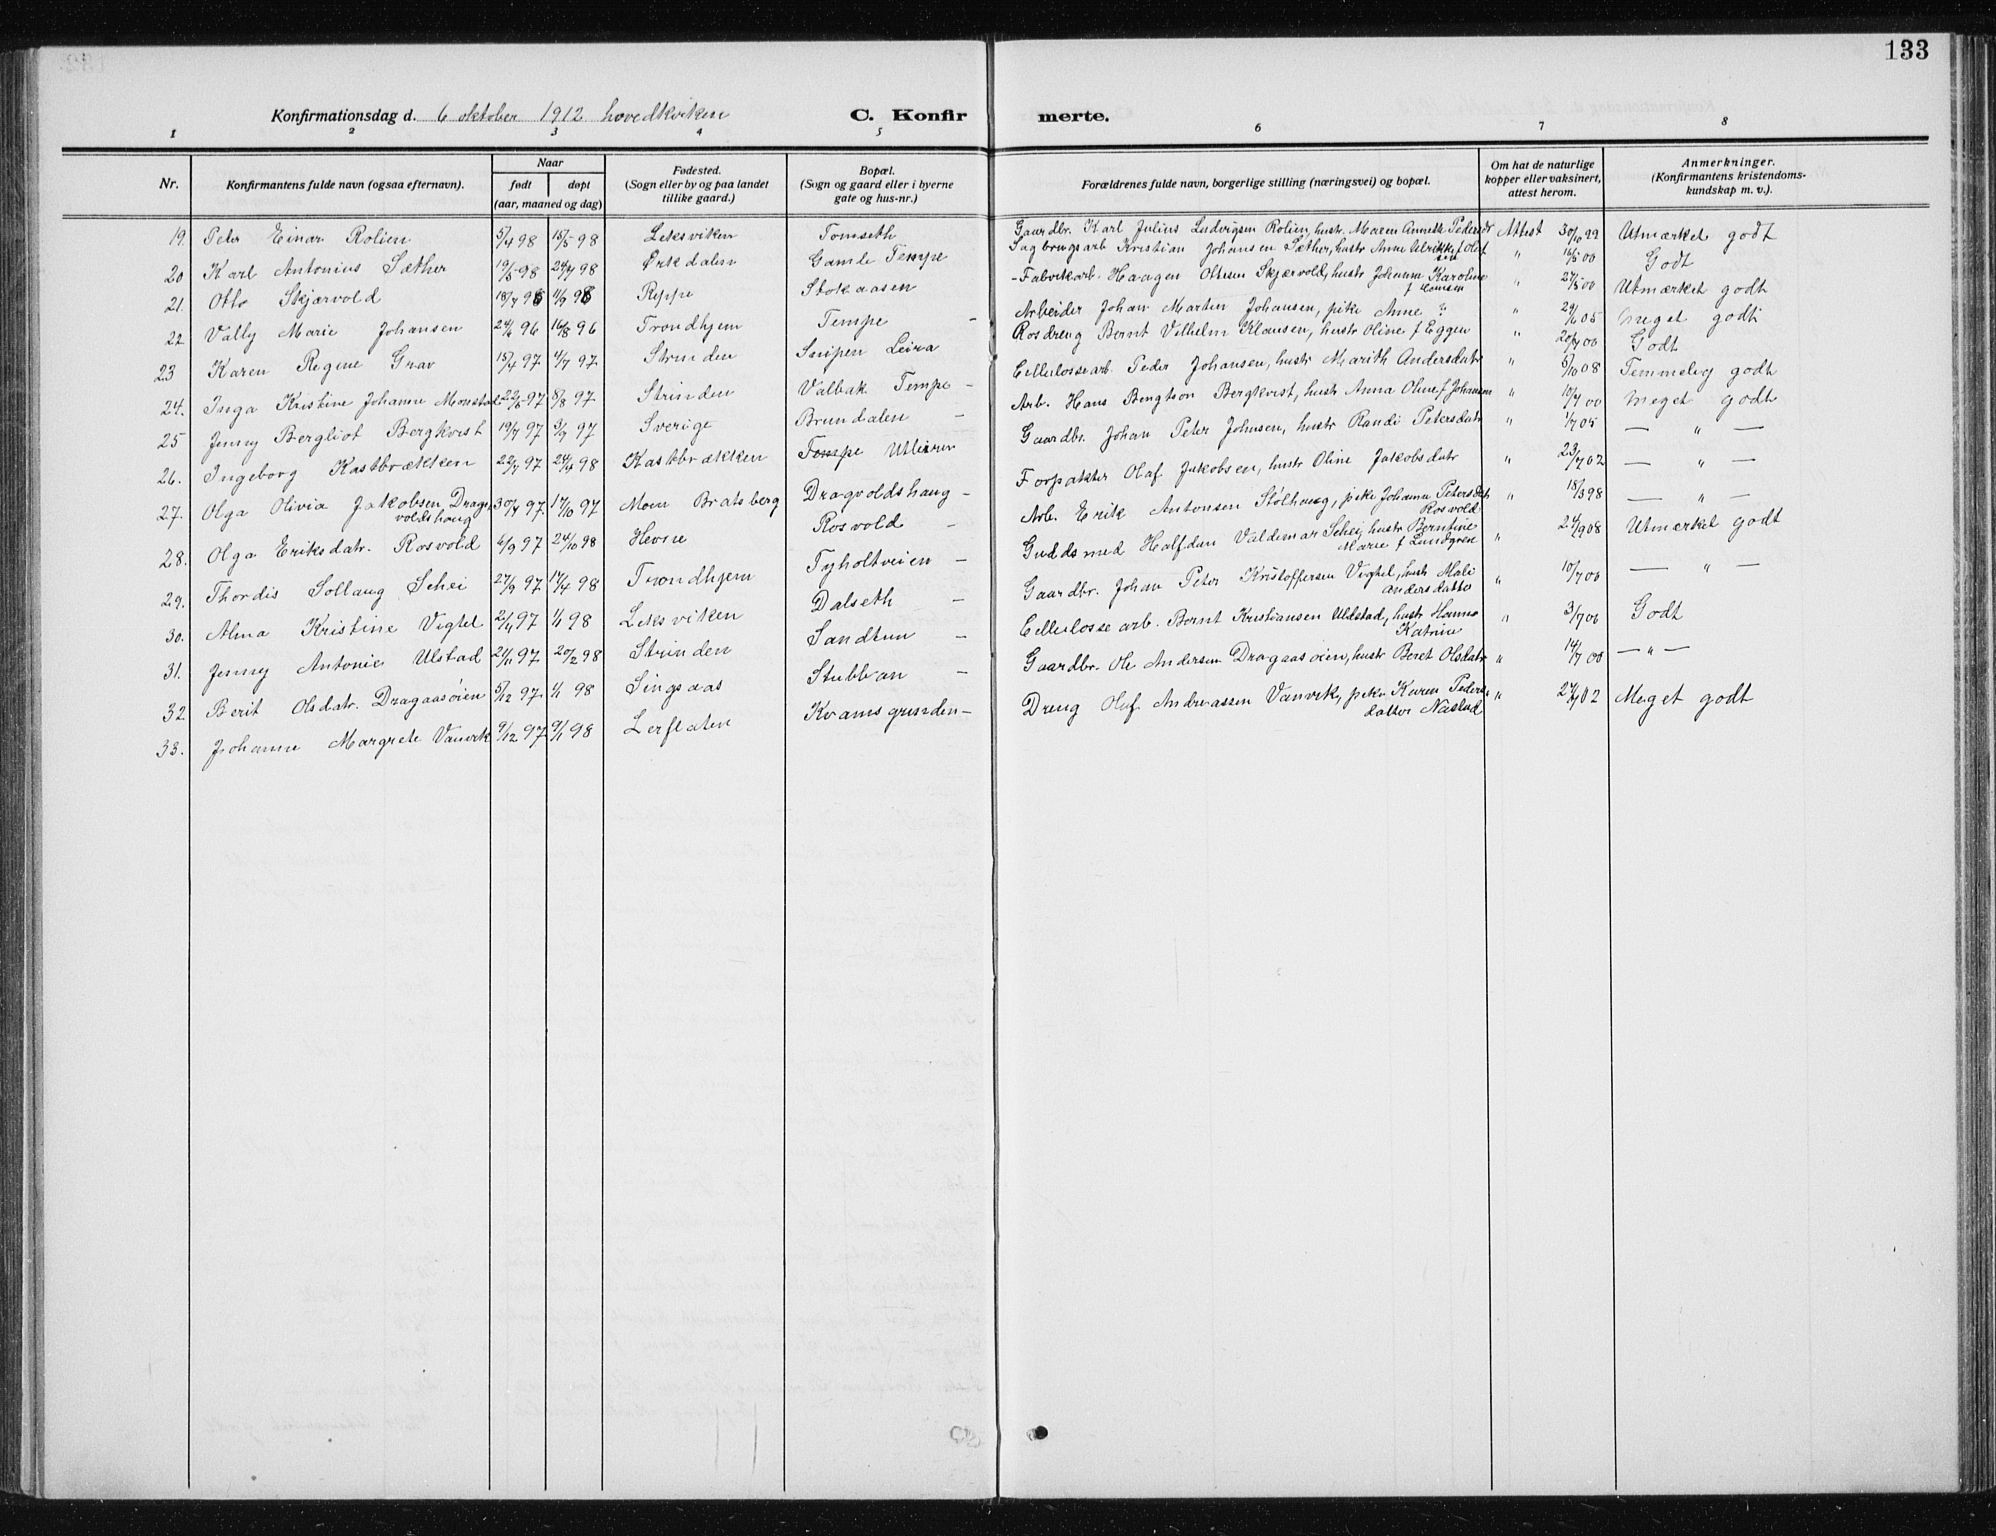 133
Konfirmationsdag d. 6 oktober 1912 hovedkirken C. Konfirmerte.
1 2 3 4 5 6 7 8
Nr. Konfirmantens fulde navn (ogsaa efternavn). Naar født døpt (aar, maaned og dag) Fødested. (Sogn eller by og paa landet tillike gaard.) Bopæl. (Sogn og gaard eller i byerne gate og hus-nr.) Forældrenes fulde navn, borgerlige stilling (næringsvei) og bopæl. Om hat de naturlige kopper eller vaksinert, attest herom. Anmerkninger. (Konfirmantens kristendoms-kundskap m. v.).
19. Peter Einar Rolien 5/4 98 15/5 98 Leksviken Tomseth Gaardbr. Karl Julius Ludvigsen Rolien, hustr. Maren Annetta Pedersdr Attest 30/10 99 Utmærket godt
20 Karl Antonius Sæther 19/5 98 24/7 98 Ørkdalen Gamle Tempe Sagbrugsarb Kristian Johansen Sæther, hustr Anne Ulrikke f Olsen " 16/5 00 Godt
21. Otto Skjærvold 18/7 98 11/9 98 Reppe Stokaasen Fabrikarb. Haagen Olsen Skjærvold, hustr Johanna Karoline f Hansen " 27/5 00 Utmærket godt
22 Vally Marie Johansen 24/6 96 16/8 96 Trondhjem Tempe - Arbeider Johan Martin Johansen, pike Anne ? " 29/6 05 Meget godt
23 Karen Regine Grav 15/4 97 4/7 97 Strinden Snipen Leira Rosdreng Bernt Vilhelm Klausen, hustr Oline f Eggen " 20/7 00 Godt
24. Inga Kristine Johanne Monstad 22/5 97 8/8 97 Strinden Valbak Tempe - Cellulosearb. Peder Johansen, hustr Marith Andersdatr " 5/10 08 Temmelig godt
25 Jenny Bergliot Bergkvist 19/7 97 5/9 97 Sverige Brundalen - Arb. Hans Bengtson Bergkvist, hustr Anna Oline f Johansen " 10/7 00 Meget godt
26. Ingeborg Kastbrækken 22/7 97 24/4 98 Kastbrækken Tempe Utleiren Gaardbr. Johan Peter Johnsen, hustr Randi Petersdatr " 1/7 05 — " —
27. Olga Olivia Jakobsen Dragvoldshaug 30/7 97 17/10 97 Moen Bratsberg Dragvoldshaug - Forpakter Olaf Jakobsen, hustr Oline Jakobsdatr " 23/7 02 — " —
28. Olga Eriksdatr. Rosvold 6/9 97 24/10 98 Hevne Rosvold - Arb. Erik Antonsen Stølhaug, pike Johanna Petersdatr Rosvold " 18/3 98 — " —
29. Thordis Sollaug Schei 27/9 97 17/4 98 Trondhjem Tyholtveien - Guldsmed Halfdan Valdemar Schei, hustr Berntine Marie f Lundgren " 24/9 08 Utmærket godt
30. Alma Kristine Vigtel 2/4 97 1/1 98 Leksviken Dalseth - Gaardbr. Johan Peter Kristoffersen Vigtel, hustr Mali Andersdatter " 10/7 00 — " —
31. Jenny Antonie Ulstad 21/11 97 20/2 98 Strinden Sandtun - Cellulosse arb. Bernt Kristiansen Uldstad, hustr Hanna Katrine " 3/7 06 Godt
32. Berit Olsdatr. Dragaasøien 5/12 97 1/1 98 Singsaas Stubban - Gaardbr. Ole Andersen Dragaasøien, hustr Beret Olsdatr " 14/7 00 — " —
33. Johanne Margrete Vanvik 9/12 97 9/1 98 Lerflaten Kvamsgrinden - Dreng Oluf Andreassen Vanvik, pike Karen Pedersdatter Nestad " 27/7 02 Meget godt